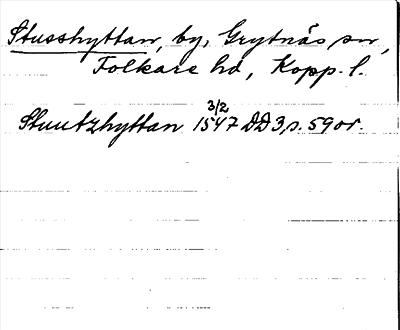 Stusshyttan, by, Grytnäs sn,
Folkare hd, Kopp. l.
Stuutzhyttan 3/2 1547 DD3, s. 59 or.